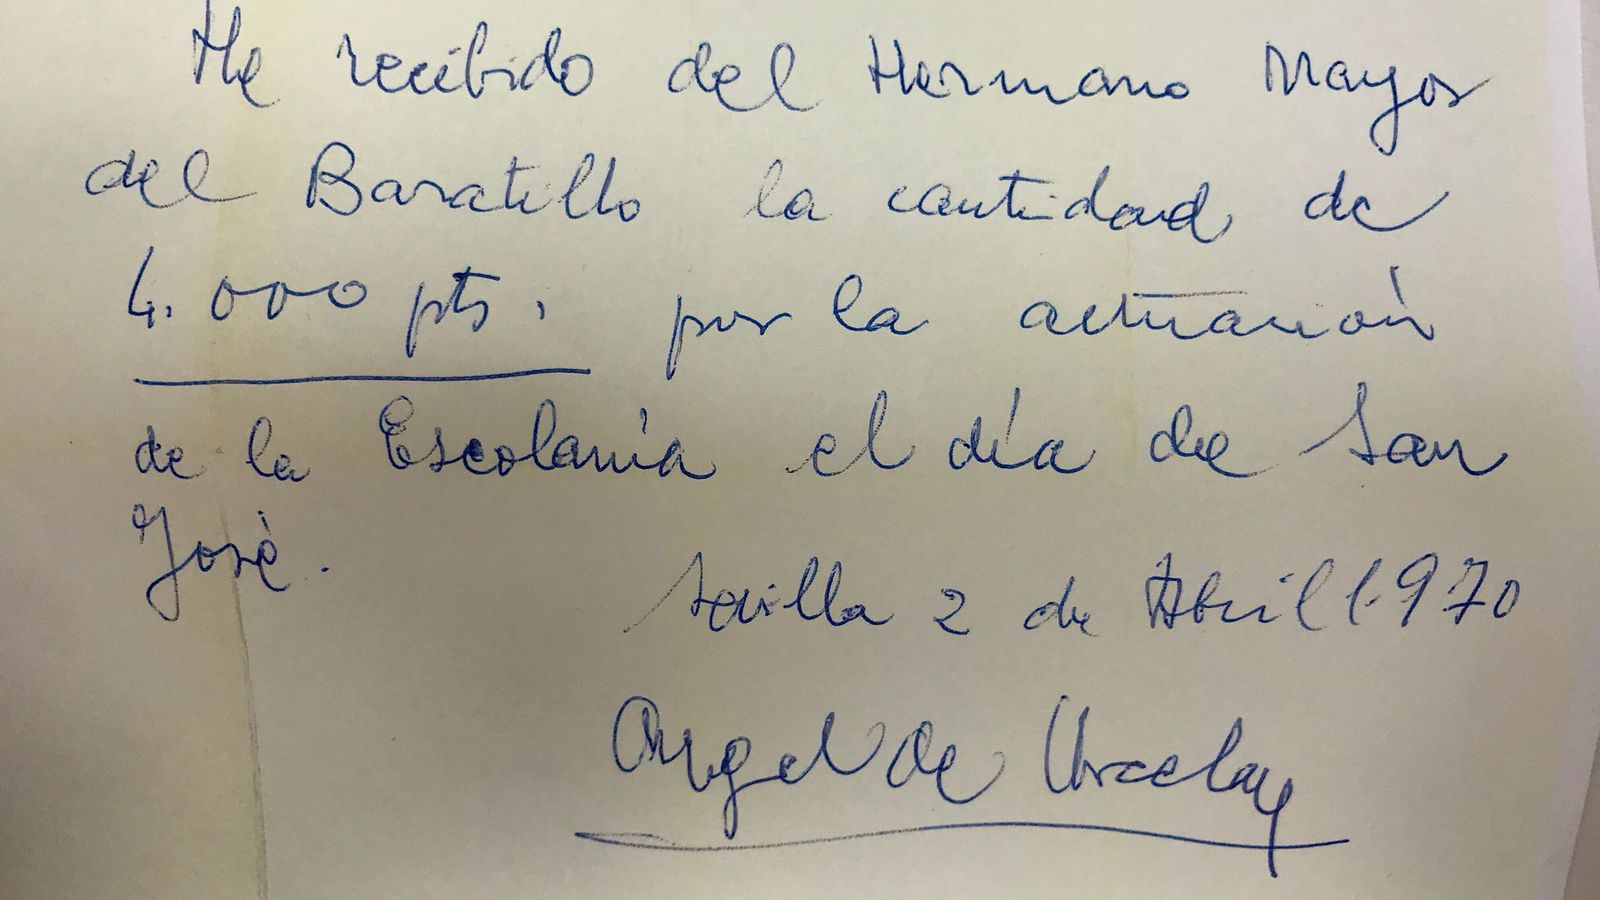 He recibido del Hermano Mayor
del Baratillo la cantidad de
4.000 pts. por la actuación
de la Escolanía el día de San
José.
Sevilla 2 de Abril 1.970
Angel de Urcelay